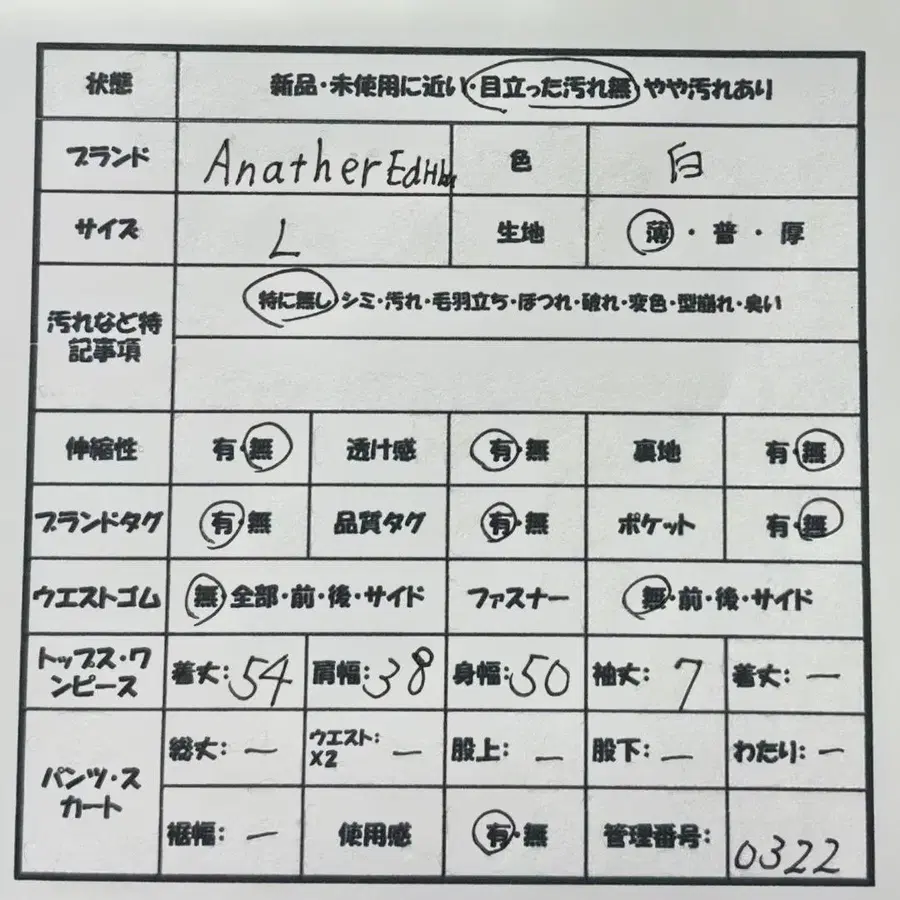 状態 新品・未使用に近い・目立った汚れ無・やや汚れあり
ブランド Anather 色 白
サイズ L 生地 薄・普・厚
汚れなど特記事項 特に無し・シミ・汚れ・毛羽立ち・ほつれ・破れ・変色・型崩れ・臭い
伸縮性 有・無 透け感 有・無 裏地 有・無
ブランドタグ 有・無 品質タグ 有・無 ポケット 有・無
ウエストゴム 無・全部・前・後・サイド ファスナー 無・前・後・サイド
トップス・ワンピース 着丈:54 肩幅:38 身幅:50 袖丈:7 着丈:ー
パンツ・スカート 総丈:ー ウエスト:X2 ー 股上:ー 股下:ー わたり:ー
裾幅:ー 使用感 有・無 管理番号:0322